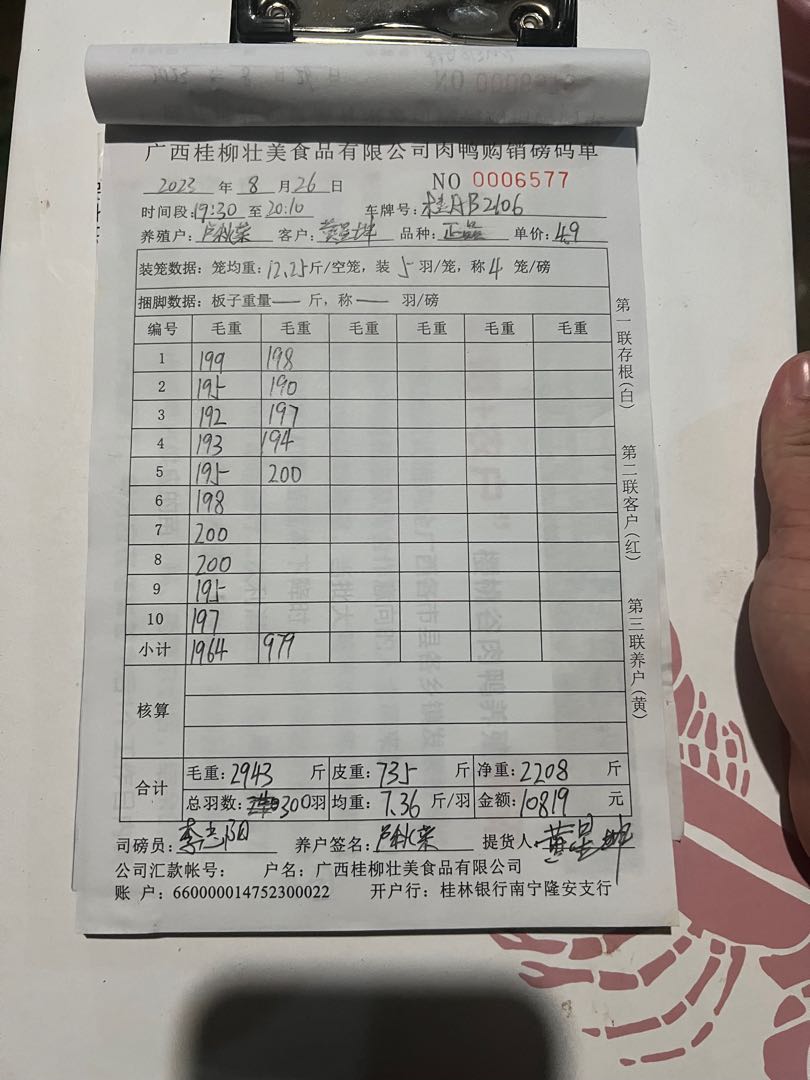 广西桂柳壮美食品有限公司肉鸭购销磅码单
2023 年 8 月 26 日 NO 0006577
时间段:19:30 至 20:10 车牌号: 桂AB2106
养殖户: 卢秋荣 客户: 黄呈坤 品种: 正品 单价: 4.9
装笼数据: 笼均重: 12.25 斤/空笼, 装 5 羽/笼, 称 4 笼/磅
捆脚数据: 板子重量 — 斤, 称 — 羽/磅
编号 毛重 毛重 毛重 毛重 毛重 毛重
1 199 198
2 195 190
3 192 197
4 193 194
5 195 200
6 198
7 200
8 200
9 195
10 197
小计 1964 979
核算
合计 毛重: 2943 斤 皮重: 735 斤 净重: 2208 斤
总羽数: 300 羽 均重: 7.36 斤/羽 金额: 10819 元
司磅员: 李志阳 养户签名: 卢秋荣 提货人: 黄呈坤
公司汇款帐号: 户名: 广西桂柳壮美食品有限公司
账 户: 660000014752300022 开户行: 桂林银行南宁隆安支行
第一联存根(白)
第二联客户(红)
第三联养户(黄)